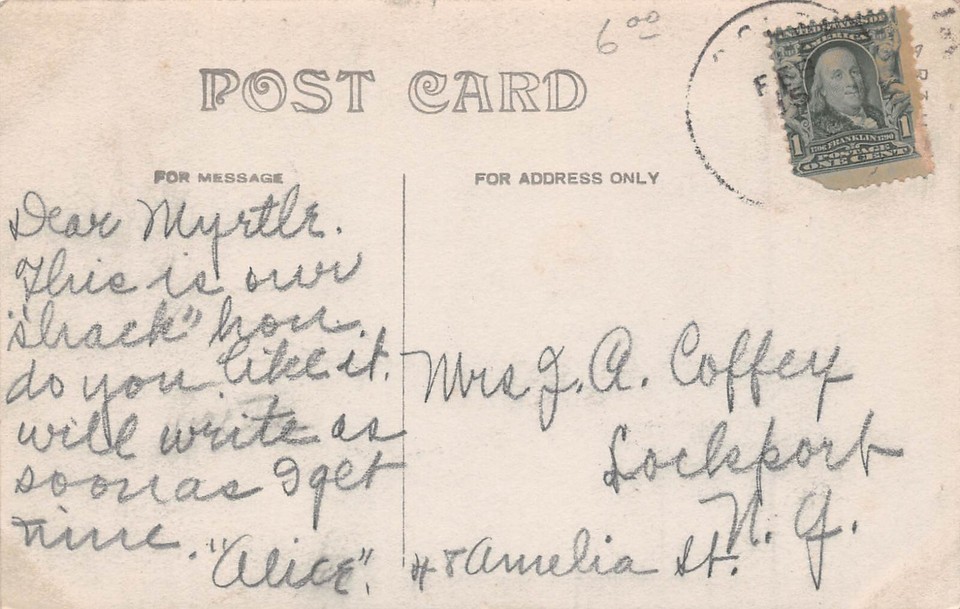 6 00
POST CARD
UNITED STATES OF
AMERICA
1706 FRANKLIN 1790
1 1
POSTAGE
ONE CENT
FOR MESSAGE
FOR ADDRESS ONLY
Dear Myrtle.
This is our
"shack" how
do you like it.
will write as
soon as I get
time.
"Alice".
Mrs J. A. Coffey
Lockport
N. Y.
48 Amelia St.